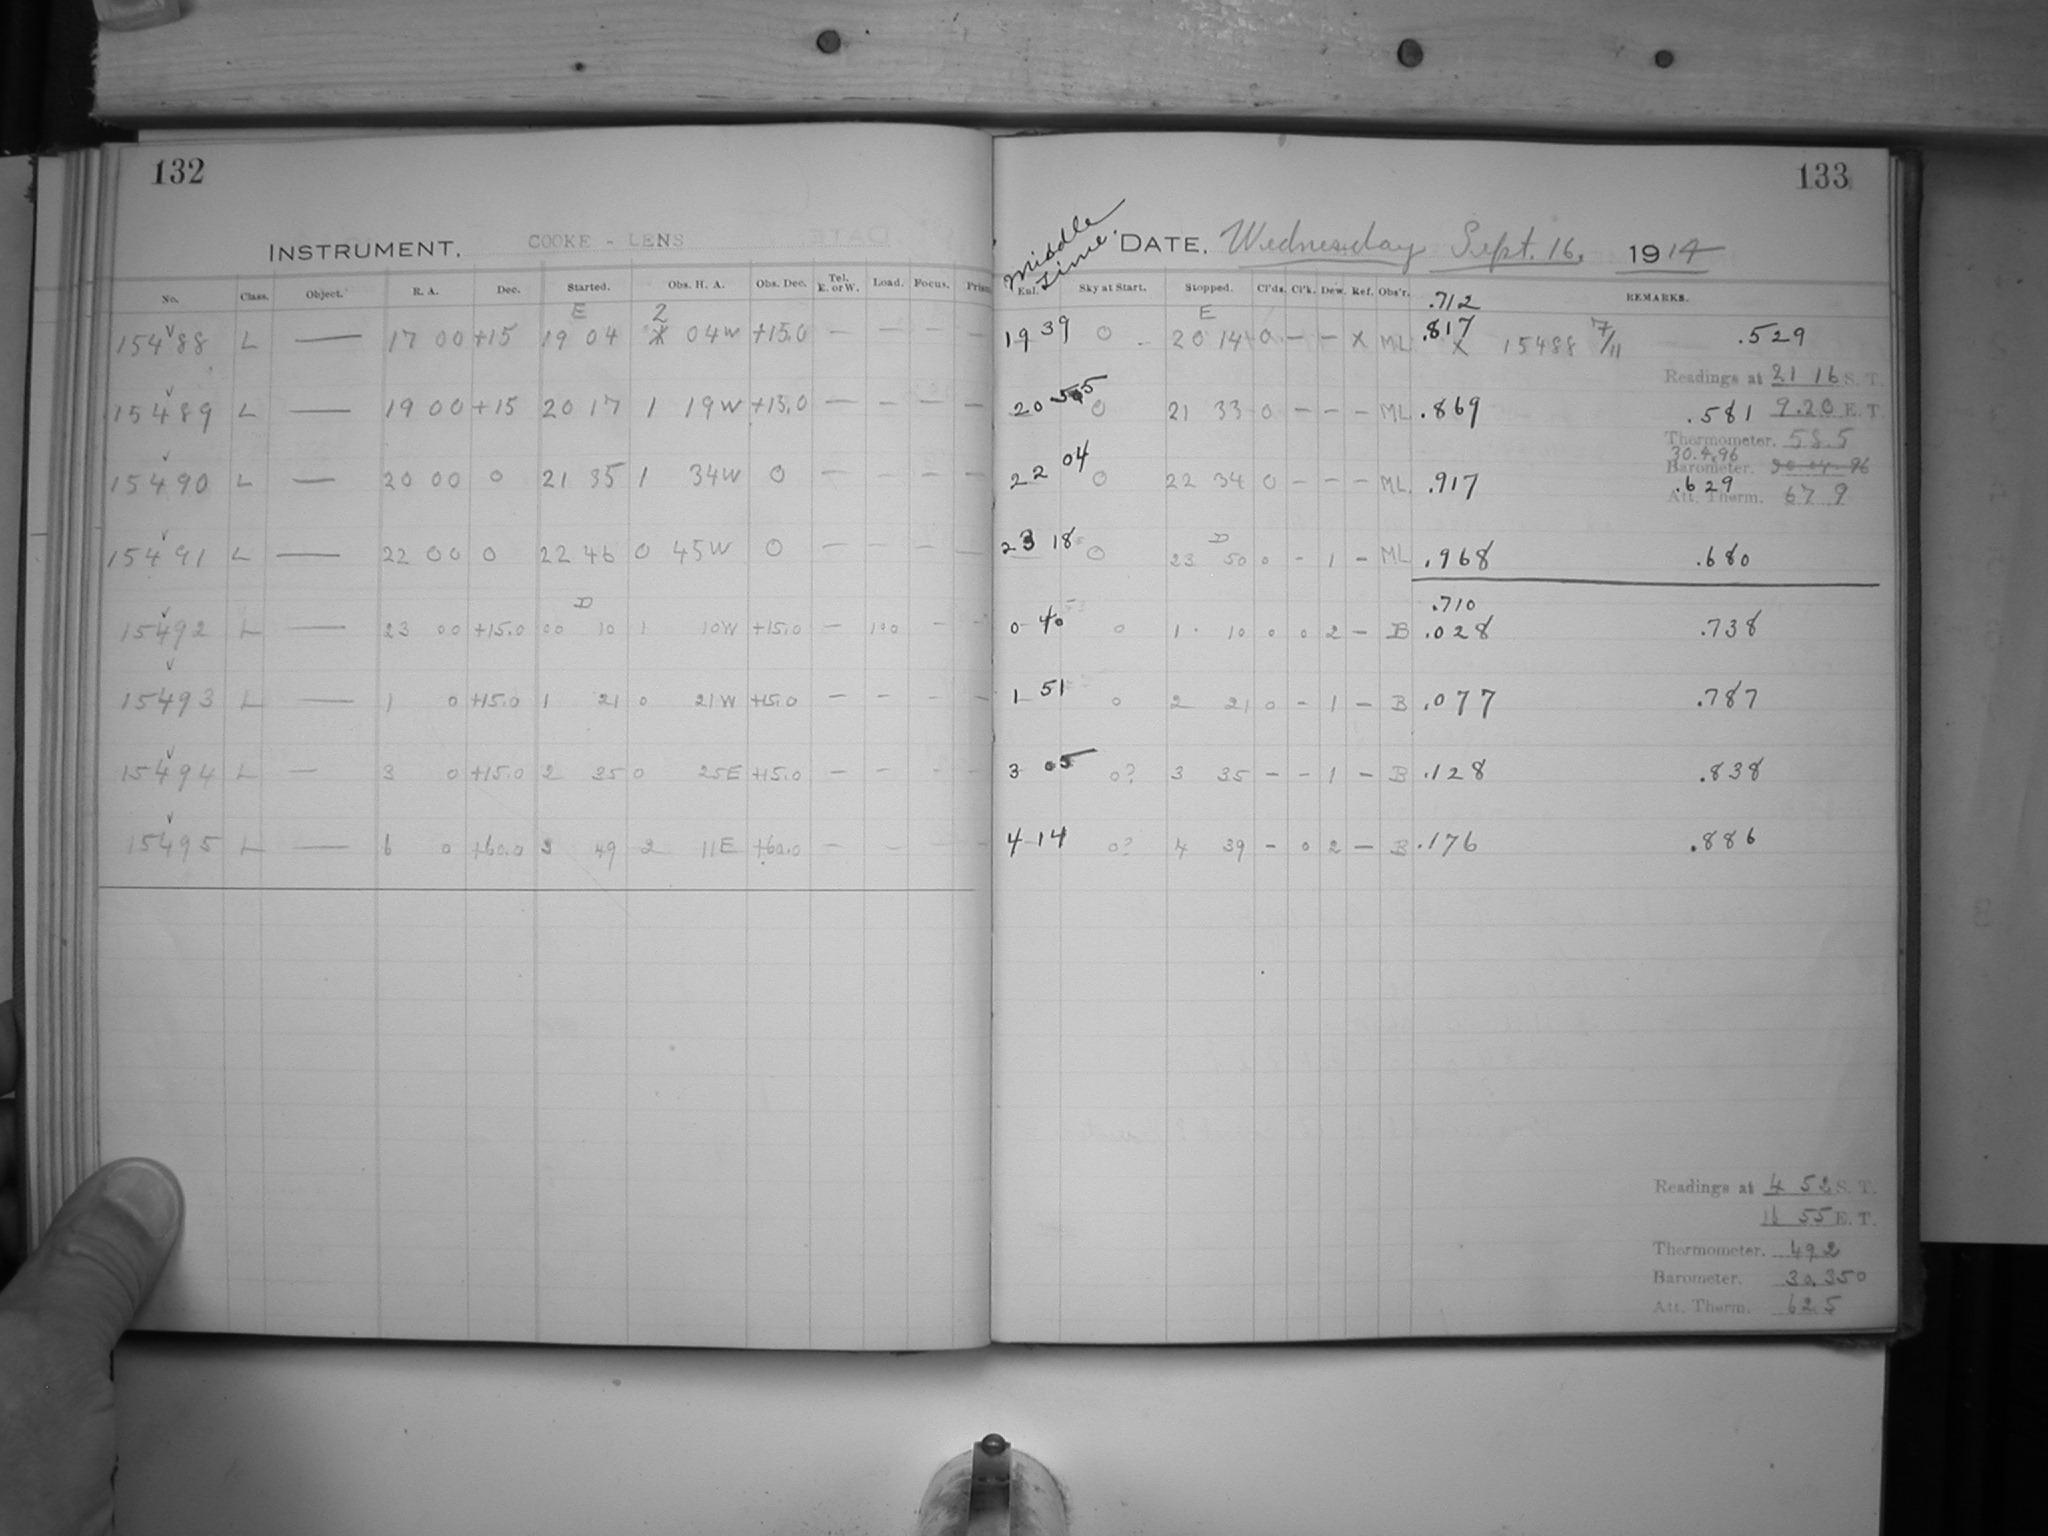 132
INSTRUMENT. COOKE - LENS
No. Class. Object. R. A. Dec. Started. Obs. H. A. Obs. Dec. Tel. E. or W. Load. Focus. Prism
E 2
15488 L — 17 00 +15 19 04 04W +15.0 — — — —
15489 L — 19 00 +15 20 17 1 19W +15.0 — — — —
15490 L — 20 00 0 21 35 1 34W 0 — — — —
15491 L — 22 00 0 22 46 0 45W 0 — — — —
D
15492 L — 23 00 +15.0 00 10 1 10W +15.0 — 100 — —
15493 L — 1 0 +15.0 1 21 0 21W +15.0 — — — —
15494 L — 3 0 +15.0 2 35 0 25E +15.0 — — — —
15495 L — 6 0 +60.0 3 49 2 11E +60.0 — — — —
133
Middle Time. DATE. Wednesday Sept. 16, 1914
Exl. Sky at Start. Stopped. Cl'ds. Cl'k. Dew. Ref. Obs'r. REMARKS.
E .712
19 39 0 20 14 0 — — X ML .817 X 15488 7/11 .529
Readings at 21 16 S. T.
20 55 0 21 33 0 — — — ML .869 .581 9.20 E. T.
Thermometer. 58.5
30.4.96
Barometer.
22 04 0 22 34 0 — — — ML .917 .629
Att. Therm. 67 9
D
23 18 0 23 50 0 - 1 — ML .968 .680
.710
0 40 0 1 10 0 0 2 — B .028 .738
1 51 0 2 21 0 - 1 — B .077 .787
3 05 0? 3 35 — - 1 — B .128 .838
4 14 0? 4 39 - 0 2 — B .176 .886
Readings at 4 52 S. T.
16 55 E. T.
Thermometer. 49.2
Barometer. 30.350
Att. Therm. 62.5